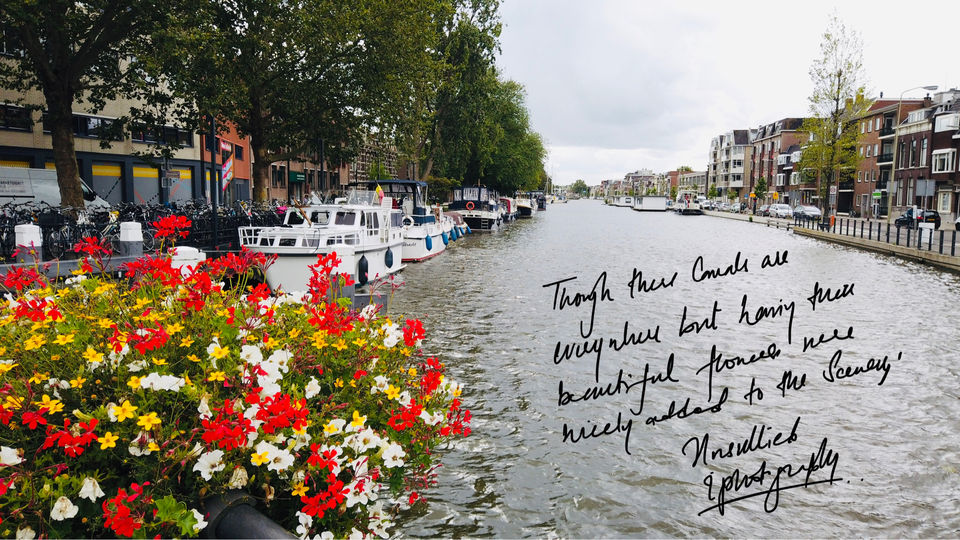 Though these Canals are
everywhere but having these
beautiful flowers here
nicely added to the Scenery,
Unsullied
iphotography..